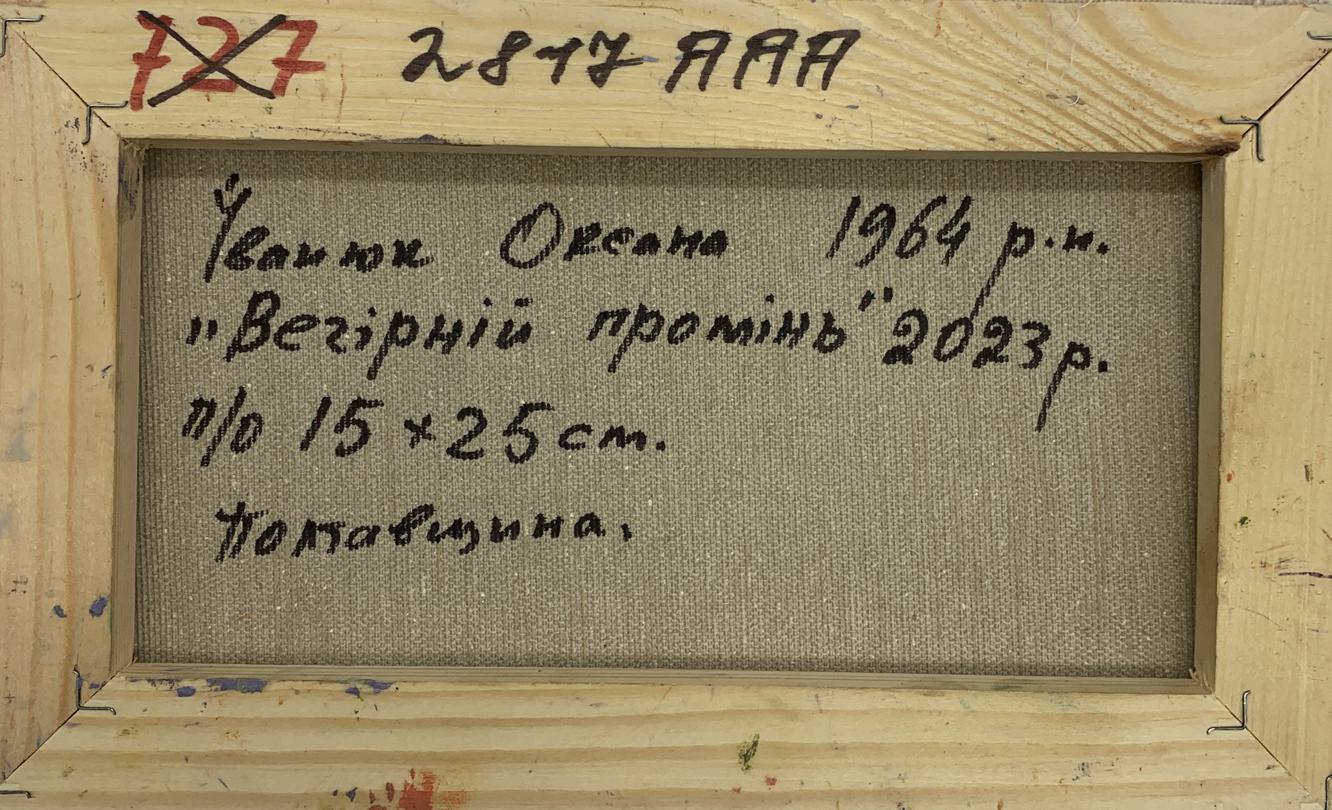 727 2817 AAA
Іванюк Оксана 1964 р.н.
„Вечірній промінь" 2023р.
п/о 15×25см.
Полтавщина.